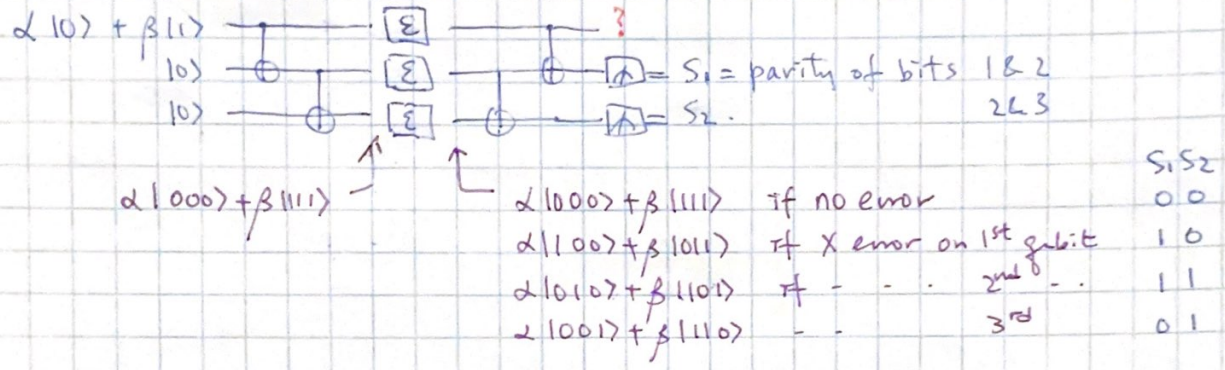 α|0⟩ + β|1⟩ ε ?
|0⟩ ε = S₁ = parity of bits 1 & 2
|0⟩ ε = S₂. 2 & 3
S₁ S₂
α|000⟩+β|111⟩ α|000⟩+β|111⟩ if no error 0 0
α|100⟩+β|011⟩ if X error on 1st qubit 1 0
α|010⟩+β|101⟩ if - - . 2nd - . 1 1
α|001⟩+β|110⟩ - - 3rd 0 1